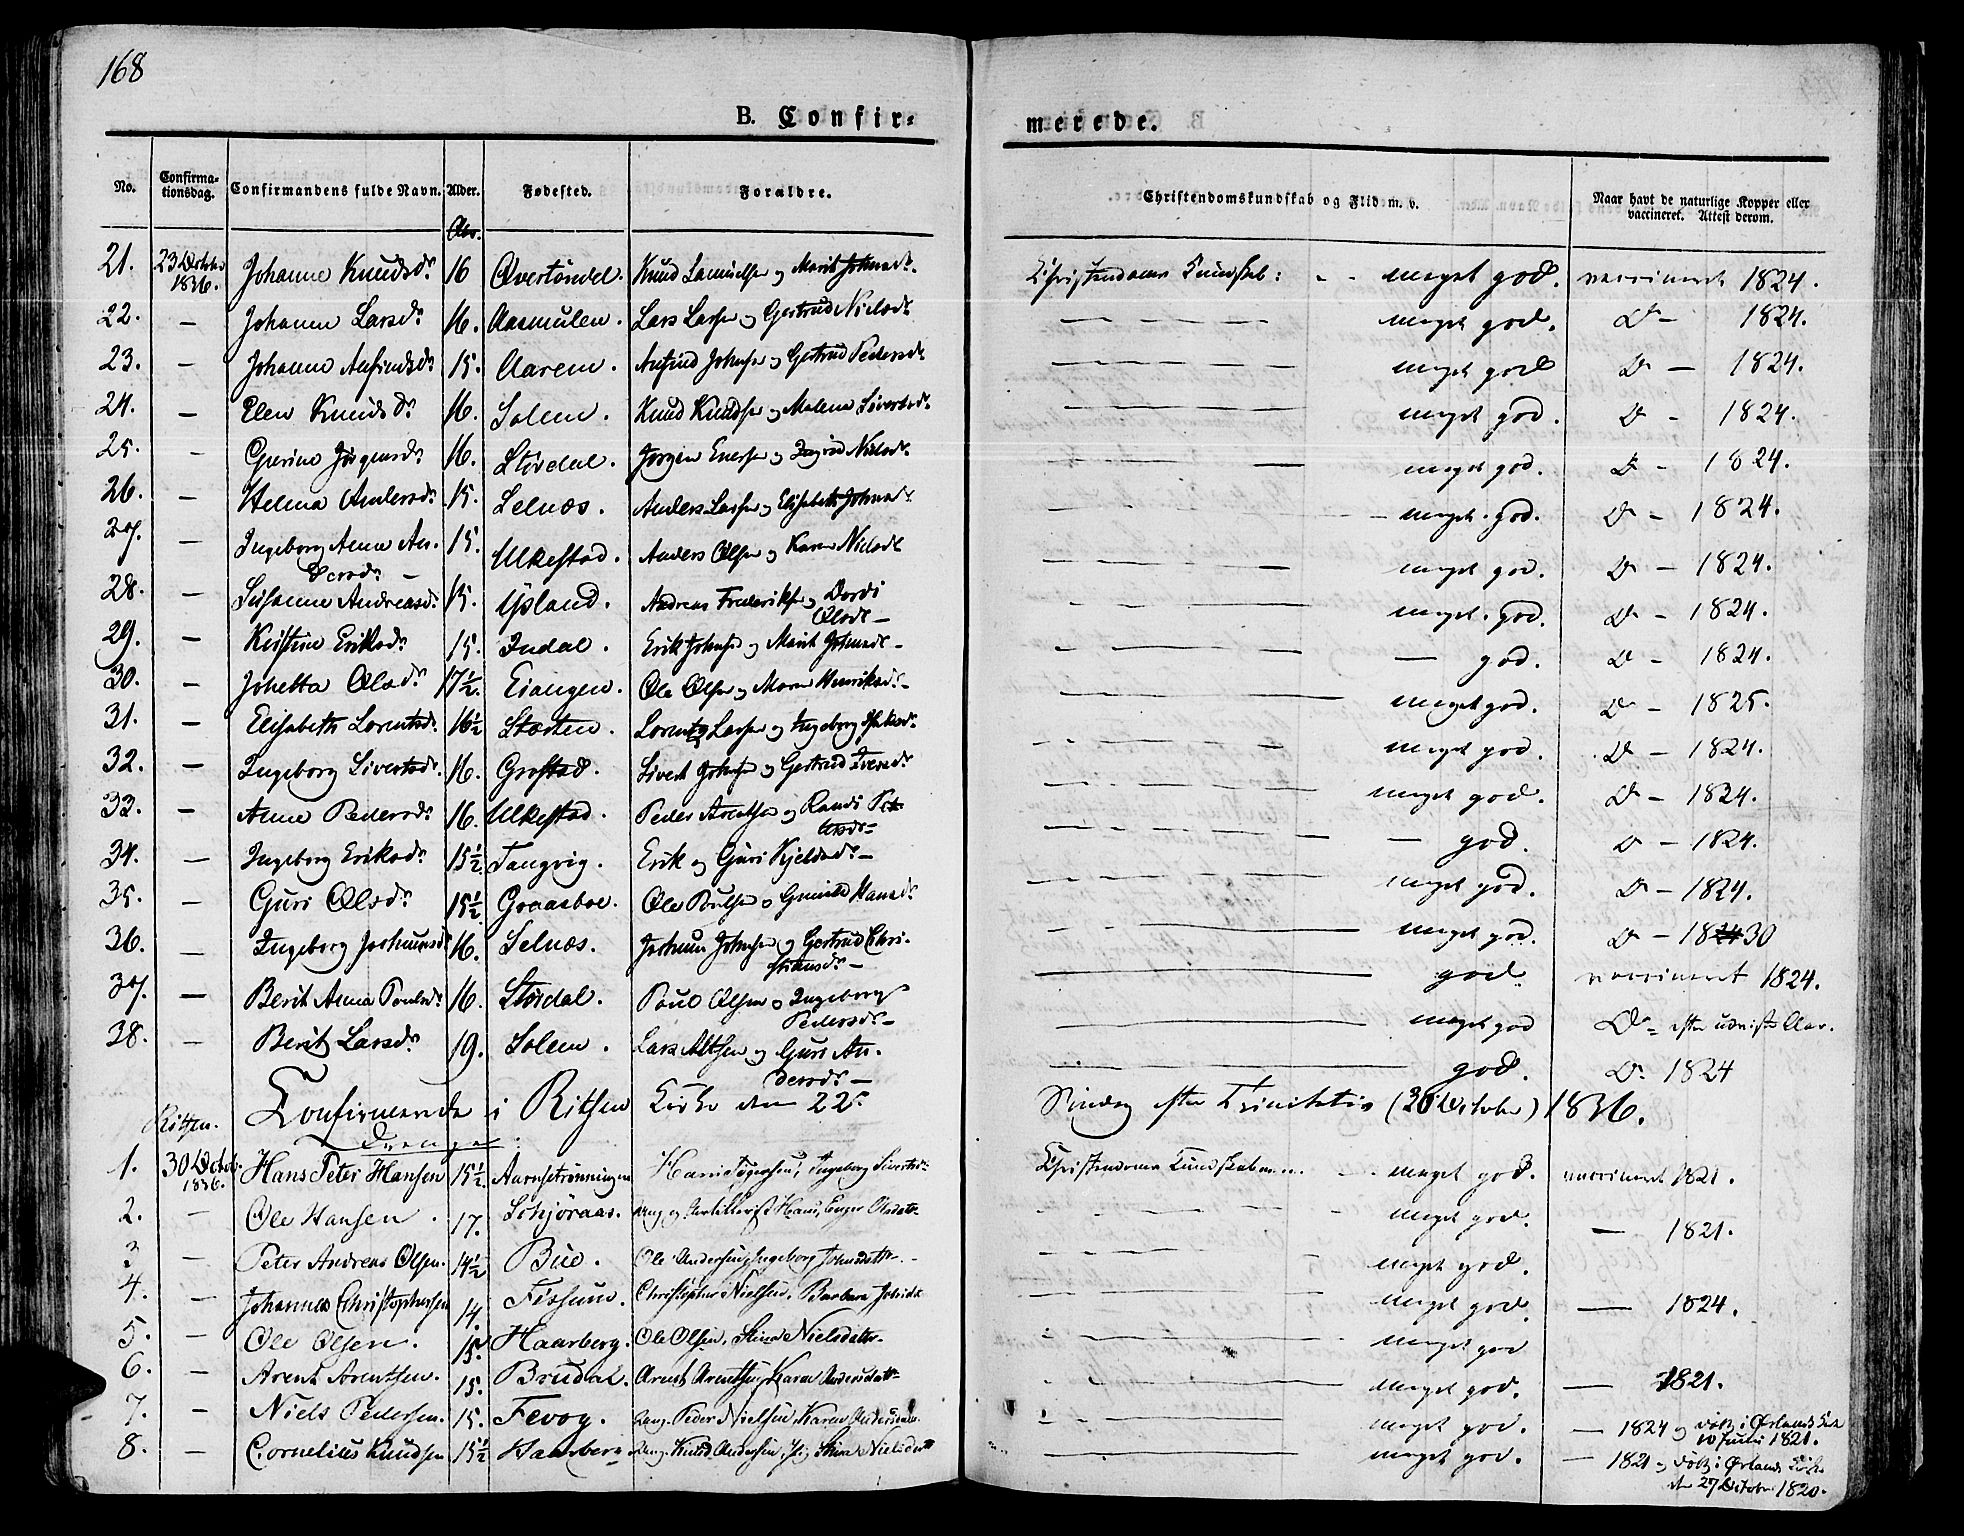 168
B. Confir-
merede.
No. Confirma-tionsdag. Confirmandens fulde Navn. Alder. Fødested. Forældre. Christendomskundskab og Flid m. v. Naar havt de naturlige Kopper eller vaccineret. Attest derom.
Aar.
21. 23 October 1836. Johanne Knudsdr. 16 Overtöndel. Knud Samuelsen og Marit Johnsdr. Christendoms Kundskab: meget god. vaccineret 1824.
22. — Johanne Larsdr. 16. Aasmulen. Lars Larsen og Gertrud Nielsdr. meget god. Do — 1824.
23. — Johanne Anfindsdr. 15. Aarem. Anfind Johnsen og Gertrud Pedersdr. meget god Do — 1824.
24. — Elen Knudsdr. 16. Solem. Knud Knudsen og Malena Sivertsdr. meget god. Do — 1824.
25. — Gjerine Jørgensdr. 16. Stördal. Jørgen Enersen og Ingrid Nielsdr. meget god. Do — 1824.
26. — Helena Andersdr. 15. Selnæs. Anders Larsen og Elisabeth Johnsdr. meget god. Do — 1824.
27. — Ingeborg Anna An-
dersdr. — 15. Ulkestad. Anders Olsen og Karen Nielsdr. meget god. Do — 1824.
28. — Susanne Andreasdr. 15. Opland. Andreas Frederiksen og Dordi
Olsdr. — meget god. Do — 1824.
29. — Kirstine Eriksdr. 15. Indal. Erik Johnsen og Marit Johnsdr. — god. Do — 1824.
30. — Johetta Olsdr. 17½. Eiangen. Ole Olsen og Maren Henriksdr. — meget god. Do — 1825.
31. — Elisabeth Lorentsdr. 16½ Stösten. Lorents Larsen og Ingeborg Isaksdr. meget god. Do — 1824.
32. — Ingeborg Sivertsdr. 16. Grøstad. Sivert Johnsen og Gertrud Iversdr. meget god. Do — 1824.
33. — Anne Pedersdr. 16. Ulkestad. Peder Arentsen og Randi Pe-
dersdr. — god. Do — 1824.
34. — Ingeborg Eriksdr. 15½. Tangvig. Erik og Guri Kjelsdr. — meget god. Do — 1824.
35. — Guri Olsdr. 15½. Graasboe. Ole Poulsen og Gunild Hansdr. meget god. Do — 1824 30
36. — Ingeborg Jochumsdr. 16. Selnæs. Jochum Johnsen og Gertrud Chri-
stiansdr. — god. vaccineret 1824.
37. — Berit Anna Poulsdr. 16. Stördal. Poul Olsen og Ingeborg
Pedersdr. — meget god Do — efter udvist Ar.
38. — Berit Larsdr. 19. Solem. Lars Altsen og Guri An-
dersdr. — god. Do 1824
Rissen. Confirmerede i Rissen Kirke den 22de Søndag efter Trinitatis (30 October) 1836.
Drenge.
1. 30 Octob. 1836. Hans Peter Hansen 15½ Aarnsetrønningen Hans Jørgensen, Ingeborg Sivertsdr. Christendoms Kundskab meget god. vaccineret 1821.
2. — Ole Hansen. 17. Schjøraas. meget god. — 1821.
3 — Peter Andreas Olsen. 14½ Bue. Ole Andersen, Ingeborg Johnsdatter. meget god.
4. — Johannes Christophersen 14. Fissum. Christopher Nielsen, Barbara Johnsdr. meget god. — 1824.
5. — Ole Olsen. 15. Haarberg. Ole Olsen, Stina Nielsdatter. meget god
6. — Arent Arentsen. 15. Brudal. Arent Arentsen, Karen Andersdatter meget god. — 1821.
7. — Niels Pedersen. 15. Fevog. Peder Nielsen, Karen Andersdatter meget god. — 1824 og døbt i Ørlands Kirke
10 Juni 1821.
8. — Cornelius Knudsen 15½ Haarberg Knud Andersen, Stina Nielsdatter meget god. — 1821 og døbt i Ørlands Kirke
den 27 October 1820.